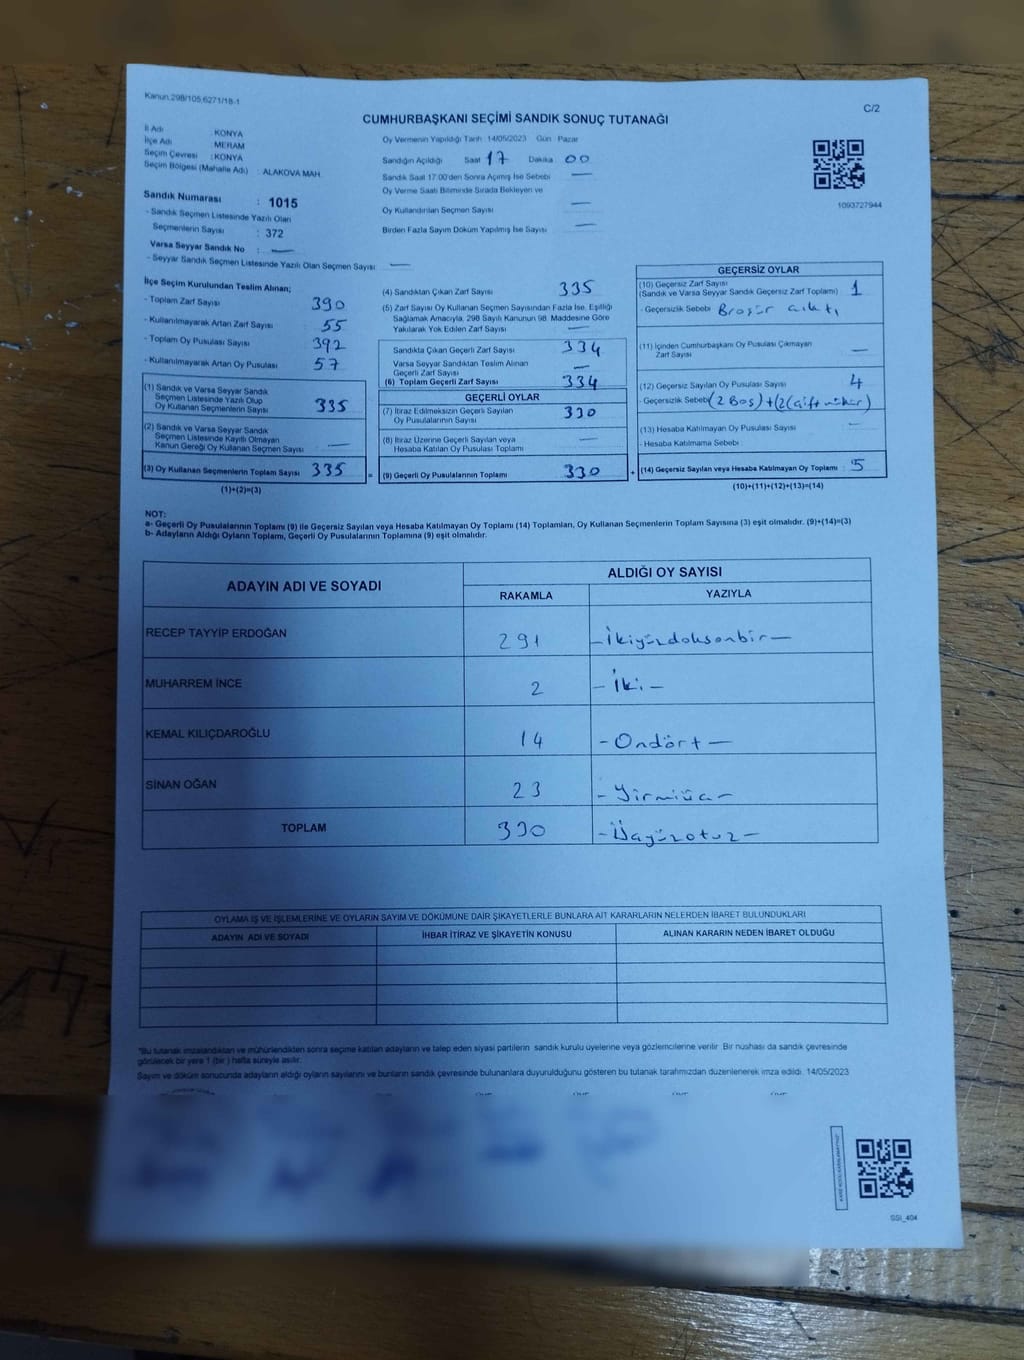 Kanun,298/105,6271/18-1
C/2
CUMHURBAŞKANI SEÇİMİ SANDIK SONUÇ TUTANAĞI
İl Adı : KONYA
İlçe Adı : MERAM
Seçim Çevresi : KONYA
Seçim Bölgesi (Mahalle Adı) : ALAKOVA MAH.
Sandık Numarası : 1015
- Sandık Seçmen Listesinde Yazılı Olan
Seçmenlerin Sayısı : 372
Varsa Seyyar Sandık No : —
- Seyyar Sandık Seçmen Listesinde Yazılı Olan Seçmen Sayısı : —
Oy Vermenin Yapıldığı Tarih 14/05/2023 Gün Pazar
Sandığın Açıldığı Saat 17 Dakika 00
Sandık Saat 17:00'den Sonra Açılmış İse Sebebi —
Oy Verme Saati Bitiminde Sırada Bekleyen ve
Oy Kullandırılan Seçmen Sayısı —
Birden Fazla Sayım Döküm Yapılmış İse Sayısı —
1093727944
İlçe Seçim Kurulundan Teslim Alınan;
- Toplam Zarf Sayısı 390
- Kullanılmayarak Artan Zarf Sayısı 55
- Toplam Oy Pusulası Sayısı 392
- Kullanılmayarak Artan Oy Pusulası 57
(1) Sandık ve Varsa Seyyar Sandık
Seçmen Listesinde Yazılı Olup
Oy Kullanan Seçmenlerin Sayısı 335
(2) Sandık ve Varsa Seyyar Sandık
Seçmen Listesinde Kayıtlı Olmayan
Kanun Gereği Oy Kullanan Seçmen Sayısı —
(3) Oy Kullanan Seçmenlerin Toplam Sayısı 335
(1)+(2)=(3)
(4) Sandıktan Çıkan Zarf Sayısı 335
(5) Zarf Sayısı Oy Kullanan Seçmen Sayısından Fazla İse, Eşitliği
Sağlamak Amacıyla, 298 Sayılı Kanunun 98. Maddesine Göre
Yakılarak Yok Edilen Zarf Sayısı —
Sandıkta Çıkan Geçerli Zarf Sayısı 334
Varsa Seyyar Sandıktan Teslim Alınan
Geçerli Zarf Sayısı —
(6) Toplam Geçerli Zarf Sayısı 334
GEÇERLİ OYLAR
(7) İtiraz Edilmeksizin Geçerli Sayılan
Oy Pusulalarının Sayısı 330
(8) İtiraz Üzerine Geçerli Sayılan veya
Hesaba Katılan Oy Pusulası Toplamı —
= (9) Geçerli Oy Pusulalarının Toplamı 330
GEÇERSİZ OYLAR
(10) Geçersiz Zarf Sayısı
(Sandık ve Varsa Seyyar Sandık Geçersiz Zarf Toplamı) 1
- Geçersizlik Sebebi Broşür çıktı
(11) İçinden Cumhurbaşkanı Oy Pusulası Çıkmayan
Zarf Sayısı —
(12) Geçersiz Sayılan Oy Pusulası Sayısı 4
- Geçersizlik Sebebi (2 Boş) + (2 Çift mühür)
(13) Hesaba Katılmayan Oy Pusulası Sayısı —
- Hesaba Katılmama Sebebi :
+ (14) Geçersiz Sayılan veya Hesaba Katılmayan Oy Toplamı : 5
(10)+(11)+(12)+(13)=(14)
NOT:
a- Geçerli Oy Pusulalarının Toplamı (9) ile Geçersiz Sayılan veya Hesaba Katılmayan Oy Toplamı (14) Toplamları, Oy Kullanan Seçmenlerin Toplam Sayısına (3) eşit olmalıdır. (9)+(14)=(3)
b- Adayların Aldığı Oyların Toplamı, Geçerli Oy Pusulalarının Toplamına (9) eşit olmalıdır.
ADAYIN ADI VE SOYADI
ALDIĞI OY SAYISI
RAKAMLA YAZIYLA
RECEP TAYYİP ERDOĞAN 291 - İkiyüzdoksanbir -
MUHARREM İNCE 2 - İki -
KEMAL KILIÇDAROĞLU 14 - Ondört -
SİNAN OĞAN 23 - Yirmiüç -
TOPLAM 330 - Üçyüzotuz -
OYLAMA İŞ VE İŞLEMLERİNE VE OYLARIN SAYIM VE DÖKÜMÜNE DAİR ŞİKAYETLERLE BUNLARA AİT KARARLARIN NELERDEN İBARET BULUNDUKLARI
ADAYIN ADI VE SOYADI İHBAR İTİRAZ VE ŞİKAYETİN KONUSU ALINAN KARARIN NEDEN İBARET OLDUĞU
*Bu tutanak imzalandıktan ve mühürlendikten sonra seçime katılan adayların ve talep eden siyasi partilerin sandık kurulu üyelerine veya gözlemcilerine verilir. Bir nüshası da sandık çevresinde
görülecek bir yere 1 (bir ) hafta süreyle asılır.
Sayım ve döküm sonucunda adayların aldığı oyların sayılarını ve bunların sandık çevresinde bulunanlara duyurulduğunu gösteren bu tutanak tarafımızdan düzenlenerek imza edildi. 14/05/2023
SSI_404